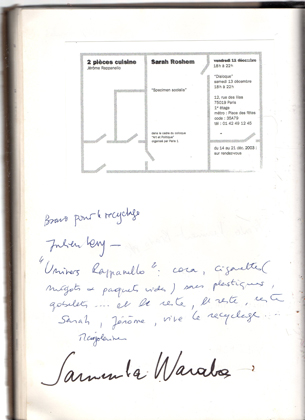 2 pièces cuisine
Jérôme Rappanello
Sarah Roshem
"Specimen societa"
dans le cadre du colloque
"Art et Politique"
organisé par Paris 1
vendredi 12 décembre
18h à 22h
"Dialogue"
samedi 13 décembre
18h à 22h
12, rue des lilas
75019 Paris
1° étage
métro : Place des fêtes
code : 35A79
tél : 01 42 49 13 45
du 14 au 21 déc. 2003
sur rendez-vous
Bravo pour le recyclage
Julien
"Univers Rappanello" : coca, cigarettes (
mégots et paquets vides) sacs plastiques,
gobelets .... et le reste, le reste, reste
Sarah, Jérôme, vive le recyclage ....
Samuela Waraba